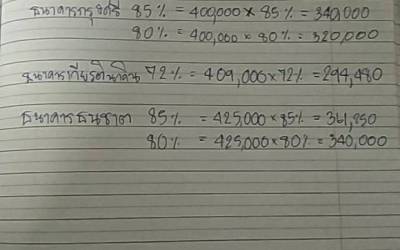 ธนาคารกรุงศรี 85% = 400,000 × 85% = 340,000
80% = 400,000 × 80% = 320,000
ธนาคารเกียรตินาคิน 72% = 409,000×72% = 294,480
ธนาคารธนชาต 85% = 425,000×85% = 361,250
80% = 425,000×80% = 340,000